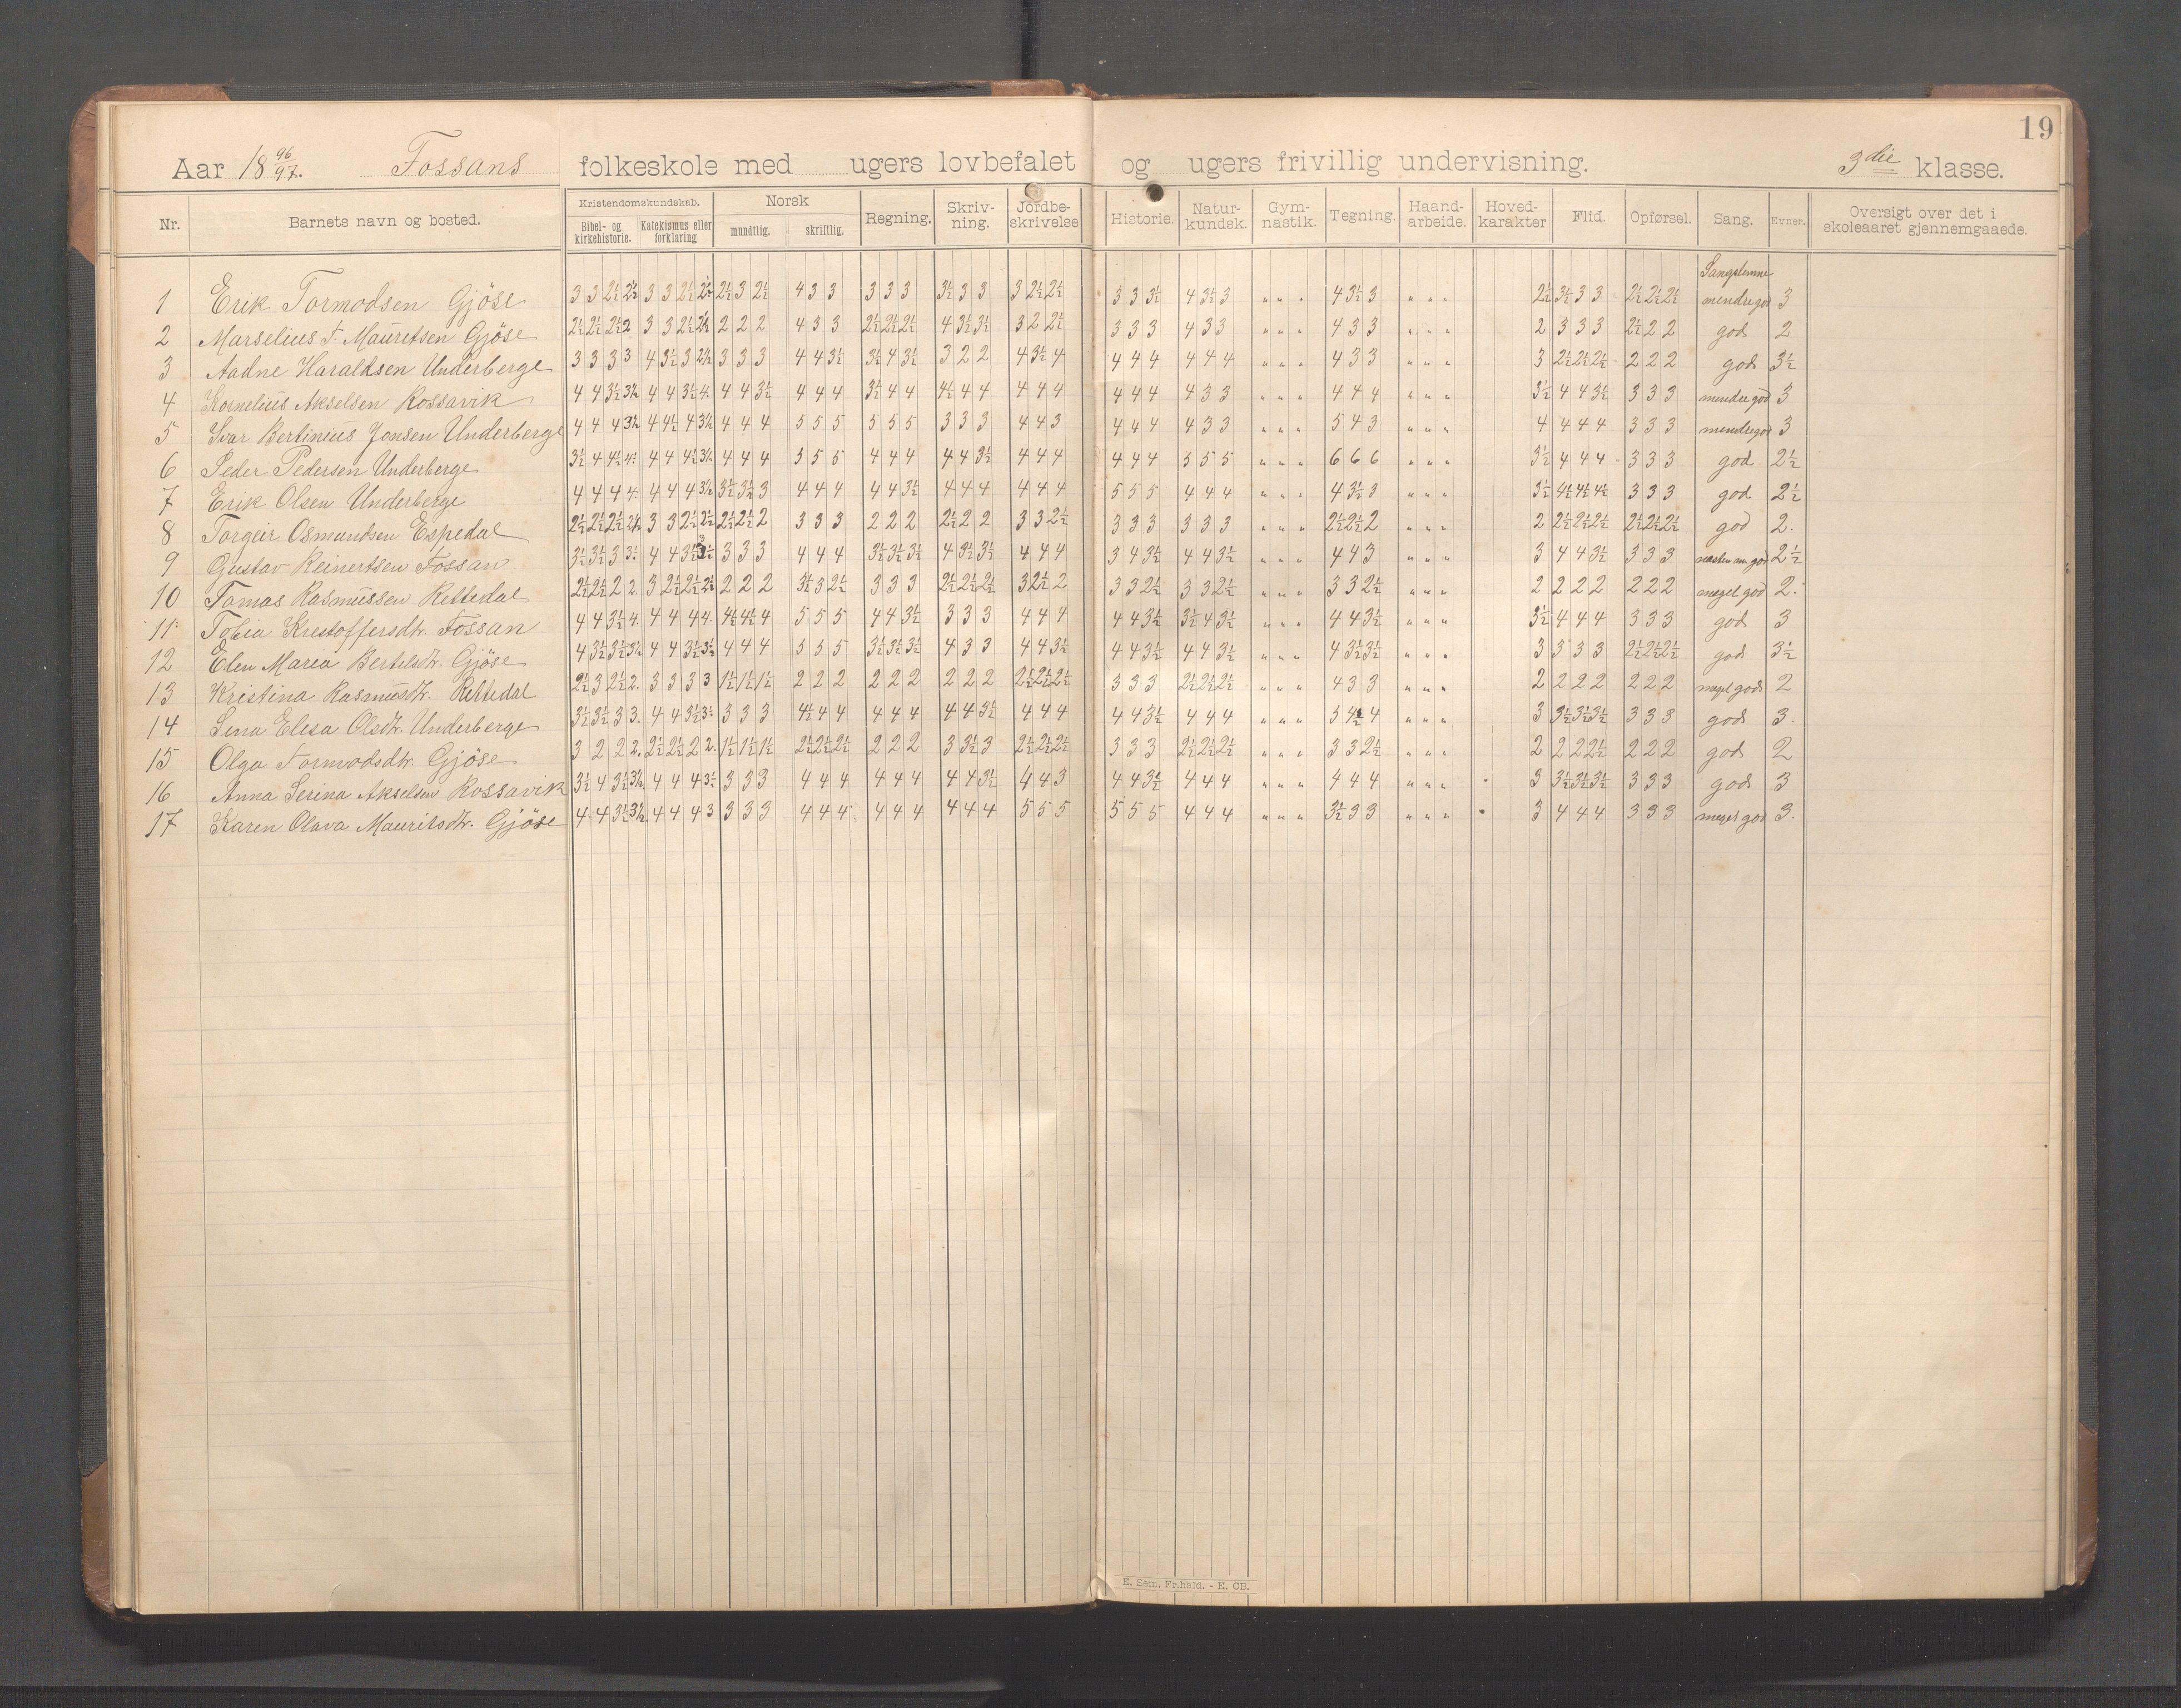 19
Aar 18 96/97. Fossans folkeskole med ugers lovbefalet og ugers frivillig undervisning. 3die klasse.
Nr. Barnets navn og bosted. Kristendomskundskab. Bibel- og kirkehistorie. Katekismus eller forklaring Norsk mundtlig. skriftlig. Regning. Skriv-ning. Jordbe-skrivelse Historie. Natur-kundsk. Gym-nastik. Tegning. Haand-arbeide. Hoved-karakter Flid. Opførsel. Sang. Evner. Oversigt over det i skoleaaret gjennemgaaede.
Sangstemne
1 Erik Tormodsen Gjöse 3 3 2½ 2½ 3 3 2½ 2½ 2½ 3 2½ 4 3 3 3 3 3 3½ 3 3 3 2½ 2½ 3 3 3½ 4 3½ 3 " " " 4 3½ 3 " " " 2½ 3½ 3 3 2½ 2½ 2½ mindre god 3
2 Marselius T. Mauritsen Gjöse 2½ 2½ 2½ 2 3 3 2½ 2½ 2 2 2 4 3 3 2½ 2½ 2½ 4 3½ 3½ 3 2 2½ 3 3 3 4 3 3 " " " 4 3 3 " " " 2 3 3 3 2½ 2 2 god 2
3 Aadne Haraldsen Underberge 3 3 3 3 4 3½ 3 2½ 3 3 3 4 4 3½ 3½ 4 3½ 3 2 2 4 3½ 4 4 4 4 4 4 4 " " " 4 3 3 " " " 3 2½ 2½ 2½ 2 2 2 god 3½
4 Kornelius Akselsen Rossavik 4 4 3½ 3½ 4 4 3½ 4. 4 4 3½ 4 4 4 3½ 4 4 4½ 4 4 4 4 4 4 4 4 4 3 3 " " " 4 4 4 " " " 3½ 4 4 3½ 3 3 3 mindre god 3
5 Ivar Bertinius Jonsen Underberge 4 4 4 3½ 4 4½ 4 3½ 4 4 4 5 5 5 5 5 5 3 3 3 4 4 3 4 4 4 4 3 3 " " " 5 4 3 " " " 4 4 4 4 3 3 3 mindre god 3
6 Peder Pedersen Underberge 3½ 4 4½ 4. 4 4 4½ 3½ 4 4 4 5 5 5 4 4 4 4 4 3½ 4 4 4 4 4 4 5 5 5 " " " 6 6 6 " " " 3½ 4 4 4 3 3 3 god 2½
7 Erik Olsen Underberge 4 4 4 4. 4 4 4 3½ 3½ 3½ 3 4 4 4 4 4 3½ 4 4 4 4 4 4 5 5 5 4 4 4 " " " 4 3½ 3 " " " 3½ 4½ 4½ 4½ 3 3 3 god 2½
8 Torgeir Osmundsen Espedal 2½ 2½ 2½ 2½ 3 3 2½ 2½ 2½ 2½ 2 3 3 3 2 2 2 2½ 2 2 3 3 2½ 3 3 3 3 3 3 " " " 2½ 2½ 2 " " " 2 2½ 2½ 2½ 2½ 2½ 2½ god 2.
9 Gustav Reinertsen Fossan 3½ 3½ 3 3½ 4 4 3½ 3 3 3 4 4 4 3½ 3½ 3½ 4 3½ 3½ 4 4 4 3 4 3½ 4 4 3½ " " " 4 4 3 " " " 3 4 4 3½ 3 3 3 god 2½
10 Tomas Rasmussen Rettedal 2½ 2½ 2 2. 3 2½ 2½ 2½ 2 2 2 3½ 3 2½ 3 3 3 2½ 2½ 2½ 3 2½ 2 3 3 2½ 3 3 2½ " " " 3 3 2½ " " " 2 2 2 2 2 2 2 meget god 2.
11 Tobia Krestoffersdtr. Fossan 4 4 3½ 4. 4 4 4 4. 4½ 4½ 4 5 5 5 4 4 3½ 3 3 3 4 4 4 4 4 3½ 3½ 4 3½ " " " 4 4 3½ " " " 3½ 4 4 4 3 3 3 god 3
12 Elen Maria Bertelsdtr. Gjöse 4 3½ 3½ 3½ 4 4 3½ 3½ 4 4 4 5 5 5 3½ 3½ 3½ 4 3 3 4 4 3½ 4 4 3½ 4 4 3½ " " " 4 3½ 3½ " " " 3 3 3 3 2½ 2½ 2½ god 3½
13 Kristina Rasmusdtr. Rettedal 2½ 3 2½ 2. 3 3 3 3 1½ 1½ 1½ 2 2 2 2 2 2 2 2 2 2½ 2½ 2½ 3 3 3 2½ 2½ 2½ " " " 4 3 3 " " " 2 2 2 2 2 2 2 meget god 2
14 Lina Elesa Olsdtr. Underberge 3½ 3½ 3 3. 4 4 3½ 3½ 3 3 3 4½ 4 4 4 4 4 4 4 3½ 4 4 4 4 4 3½ 4 4 4 " " " 5 4½ 4 " " " 3 3½ 3½ 3½ 3 3 3 god 3.
15 Olga Tormodsdtr. Gjöse 3 2 2 2. 2½ 2½ 2 2. 1½ 1½ 1½ 2½ 2½ 2½ 2 2 2 3 3½ 3 2½ 2½ 2½ 3 3 3 2½ 2½ 2½ " " " 3 3 2½ " " " 2 2 2 2½ 2 2 2 god 2
16 Anna Serina Akselsen Rossavik 3½ 4 3½ 3½ 4 4 4 3½ 3 3 3 4 4 4 4 4 4 4 4 3½ 4 4 3 4 4 3½ 4 4 4 " " " 4 4 4 " " " 3 3½ 3½ 3½ 3 3 3 god 3
17 Karen Olava Mauritsdtr. Gjöse 4 4 3½ 3½ 4 4 4 3 3 3 3 4 4 4 4 4 4 4 4 4 5 5 5 5 5 5 4 4 4 " " " 3½ 3 3 " " " 3 4 4 4 3 3 3 meget god 3.
E. Sem, Fr.hald. - E. CB.